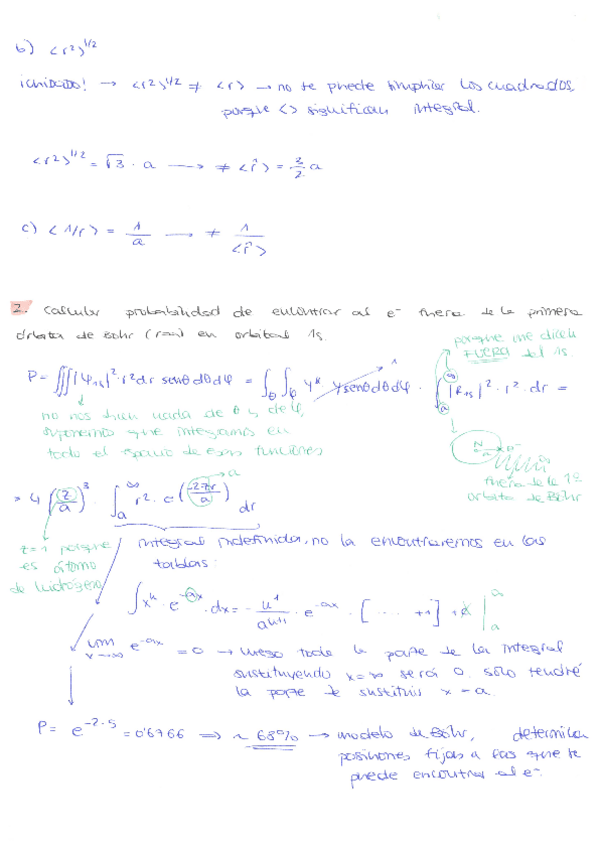 b) <r²>^1/2
¡CUIDADO! → <r²>^1/2 ≠ <r> → no se puede simplificar los cuadrados,
porque <> significan integral.
<r²>^1/2 = √3 · a → ≠ <r̂> = 3/2 a
c) <1/r> = 1/a → ≠ 1/<r̂>
2. Calcular probabilidad de encontrar al e⁻ fuera de la primera
órbita de Bohr (r=a) en orbital 1s.
porque me dicen
FUERA del 1s
P = ∭|Ψ₁ₛ|² · r² dr senθ dθ dφ = ∫θ ∫φ Y* · Y senθ dθ dφ · ∫ₐ^∞ |R₁ₛ|² · r² · dr =
1
no nos dicen nada de θ y de φ,
suponemos que integramos en
todo el espacio de esas funciones
N
e⁻
fuera de la 1ª
órbita de Bohr
= 4 (z/a)³ · ∫ₐ^∞ r² · e^(-2zr/a) dr
a
z=1 porque
es átomo
de hidrógeno
integral indefinida, no la encontraremos en las
tablas:
∫xⁿ · e^-ax · dx = - n!/aⁿ⁺¹ · e^-ax · [ ··· +1]
lim x→∞ e^-ax = 0 → luego toda la parte de la integral
sustituyendo x=∞ será 0. Sólo tendré
la parte de sustituir x=a.
P = e^-2 · 5 = 0'6766 ⇒ ~ 68% → modelo de Bohr, determina
posiciones fijas a las que se
puede encontrar al e⁻.